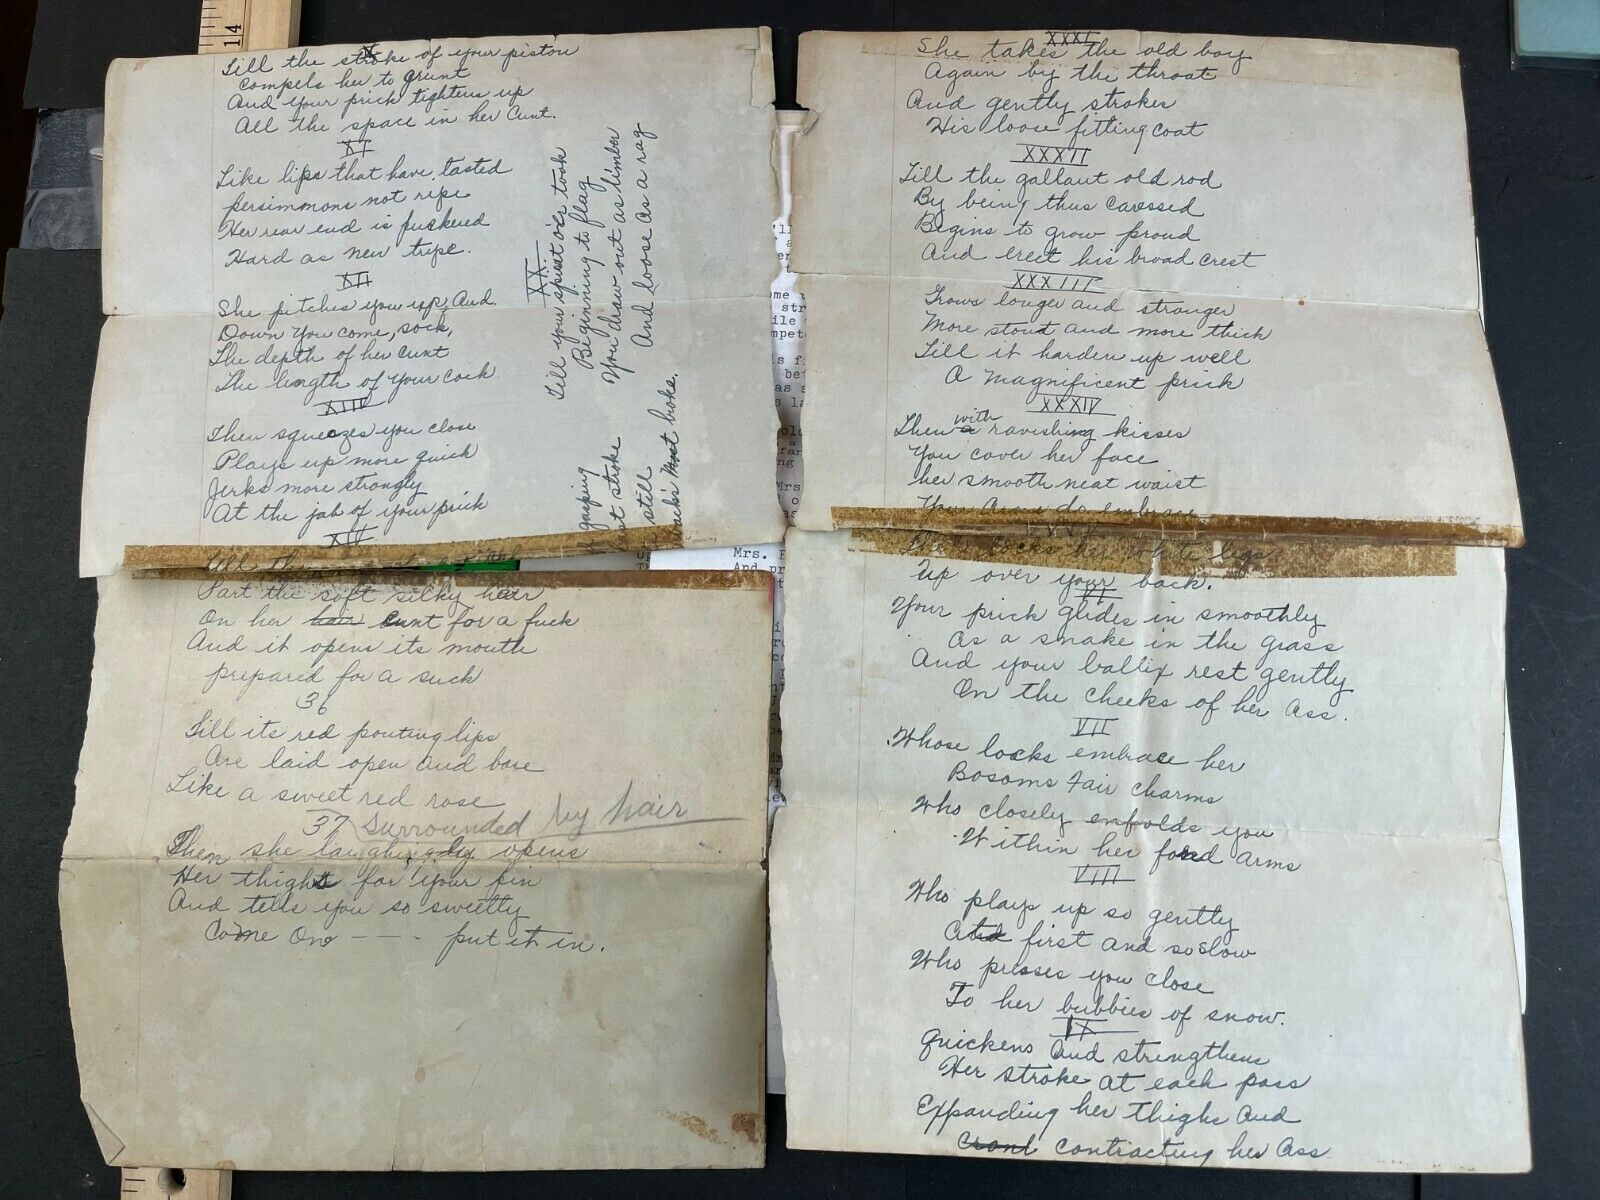 X
Till the stroke of your piston
Compels her to grunt
And your prick tightens up
All the space in her Cunt.
XI
Like lips that have tasted
persimmons not ripe
Her rear end is puckered
Hard as new tripe.
XII
She pitches you up And
Down You come, sock,
The depth of her Cunt
The length of your Cock
XIII
Then squeezes you close
Plays up more quick
Jerks more strongly
At the jab of your prick
XIV
XX
Till your spirit o'er took
Beginning to flag
You draw out as limber
And loose As a rag
gasping
last stroke
still
back's most broke.
Part the soft silky hair
On her hair Cunt for a fuck
And it opens its mouth
prepared for a suck
36
Till its red pouting lips
Are laid open And bare
Like a sweet red rose
Surrounded by hair
37
Then she laughingly opens
Her thighs for your pin
And tells you so sweetly
Come On - - - put it in.
XXXI
She takes the old boy
Again by the throat
And gently strokes
His loose fitting coat
XXXII
Till the gallant old rod
By being thus caressed
Begins to grow proud
And erect his broad crest
XXXIII
Grows longer and stronger
More stout and more thick
Till it harden up well
A magnificent prick
XXXIV
Then with ravishing kisses
You cover her face
her smooth neat waist
Your Arms do embrace
XXXV
locks her white legs
Up over your back.
VI
Your prick glides in smoothly
As a snake in the grass
And your ballix rest gently
On the cheeks of her Ass.
VII
Whose locks embrace her
Bosoms Fair Charms
Who closely enfolds you
Within her fond arms
VIII
Who plays up so gently
At first and so slow
Who presses you close
To her bubbies of snow.
IX
Quickens And strengthens
Her stroke at each pass
Expanding her thighs And
contracting her Ass